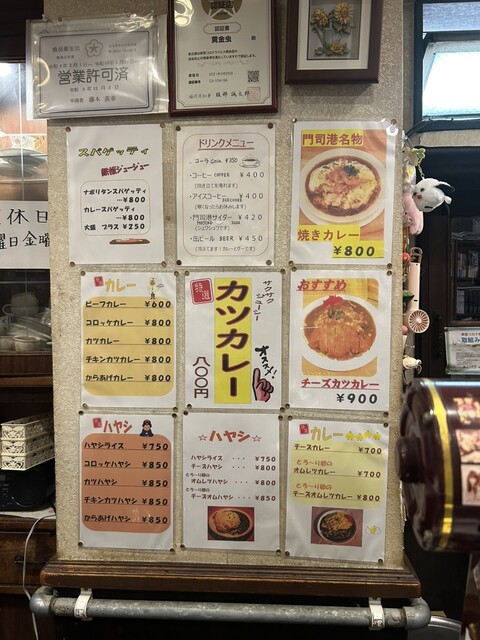 営業許可済
認証書
黄金虫
福岡県知事 服部 誠太郎
休日
曜日金曜
スパゲッティ
鉄板ジュージュー
ナポリタンスパゲッティ
‥‥¥800
カレースパゲッティ
‥‥¥800
大盛 プラス ¥250
ドリンクメニュー
・コーラ Cola ¥350
・コーヒー COFFEE ¥400
・アイスコーヒー ¥400
・門司港サイダー ¥420
・缶ビール BEER ¥450
門司港名物
焼きカレー
¥800
カレー
ビーフカレー ¥600
コロッケカレー ¥800
カツカレー ¥800
チキンカツカレー ¥800
からあげカレー ¥800
特選
カツカレー
サクサク
ジューシー
オススメ!
八〇〇円
おすすめ
チーズカツカレー
¥900
ハヤシ
ハヤシライス ¥750
コロッケハヤシ ¥850
カツハヤシ ¥850
チキンカツハヤシ ¥850
からあげハヤシ ¥850
☆ハヤシ☆
ハヤシライス ・・・ ¥750
チーズハヤシ ・・・ ¥800
とろ〜り卵の
オムレツハヤシ ・・ ¥800
とろ〜り卵の
チーズオムレツハヤシ ¥850
カレー
チーズカレー
¥700
とろ〜り卵の
オムレツカレー
¥700
とろ〜り卵の
チーズオムレツカレー
¥800
取組み